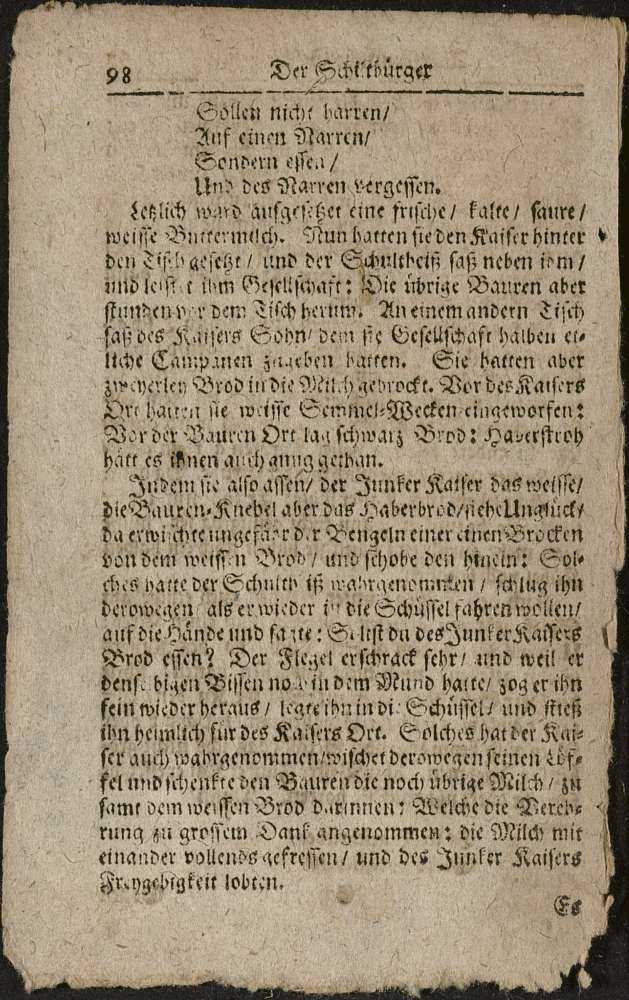 98 Der Schiltbürger
Sollen nicht harren/
Auf einen Narren/
Sondern essen/
Und des Narren vergessen.
Letzlich ward aufgesetzet eine frische/ kalte/ saure/
weisse Buttermilch. Nun hatten sie den Kaiser hinter
den Tisch gesetzt/ und der Schultheiß saß neben ihm/
und leistet ihm Gesellschaft: Die übrige Bauren aber
stunden vor dem Tisch herum. An einem andern Tisch
saß des Kaisers Sohn/ dem sie Gesellschaft halben et-
liche Campanen zugeben hatten. Sie hatten aber
zweyerley Brod in die Milch gebrockt. Vor des Kaisers
Ort hatten sie weisse Semmel-Wecken eingeworfen:
Vor der Bauren Ort lag schwarz Brod: Haberstroh
hätt es ihnen auch gnug gethan.
Indem sie also assen/ der Junker Kaiser das weisse/
die Bauren-Knebel aber das Haberbrod/ siehe Unglück/
da erwischte ungefähr der Bengeln einer einen Brocken
von dem weissen Brod/ und schobe den hinein: Sol-
ches hatte der Schultheiß wahrgenommen/ schlug ihn
derowegen/ als er wieder in die Schüssel fahren wollen/
auf die Hände und sagte: Sollst du des Junker Kaisers
Brod essen? Der Flegel erschrack sehr/ und weil er
denselbigen Bissen noch in dem Mund hatte/ zog er ihn
fein wieder heraus/ legte ihn in die Schüssel/ und stieß
ihn heimlich für des Kaisers Ort. Solches hat der Kai-
ser auch wahrgenommen/ wischet derowegen seinen Löf-
fel und schenkte den Bauren die noch übrige Milch/ zu
samt dem weissen Brod darinnen: Welche die Vereh-
rung zu grossem Dank angenommen: die Milch mit
einander vollends gefressen/ und des Junker Kaisers
Freygebigkeit lobten.
Es